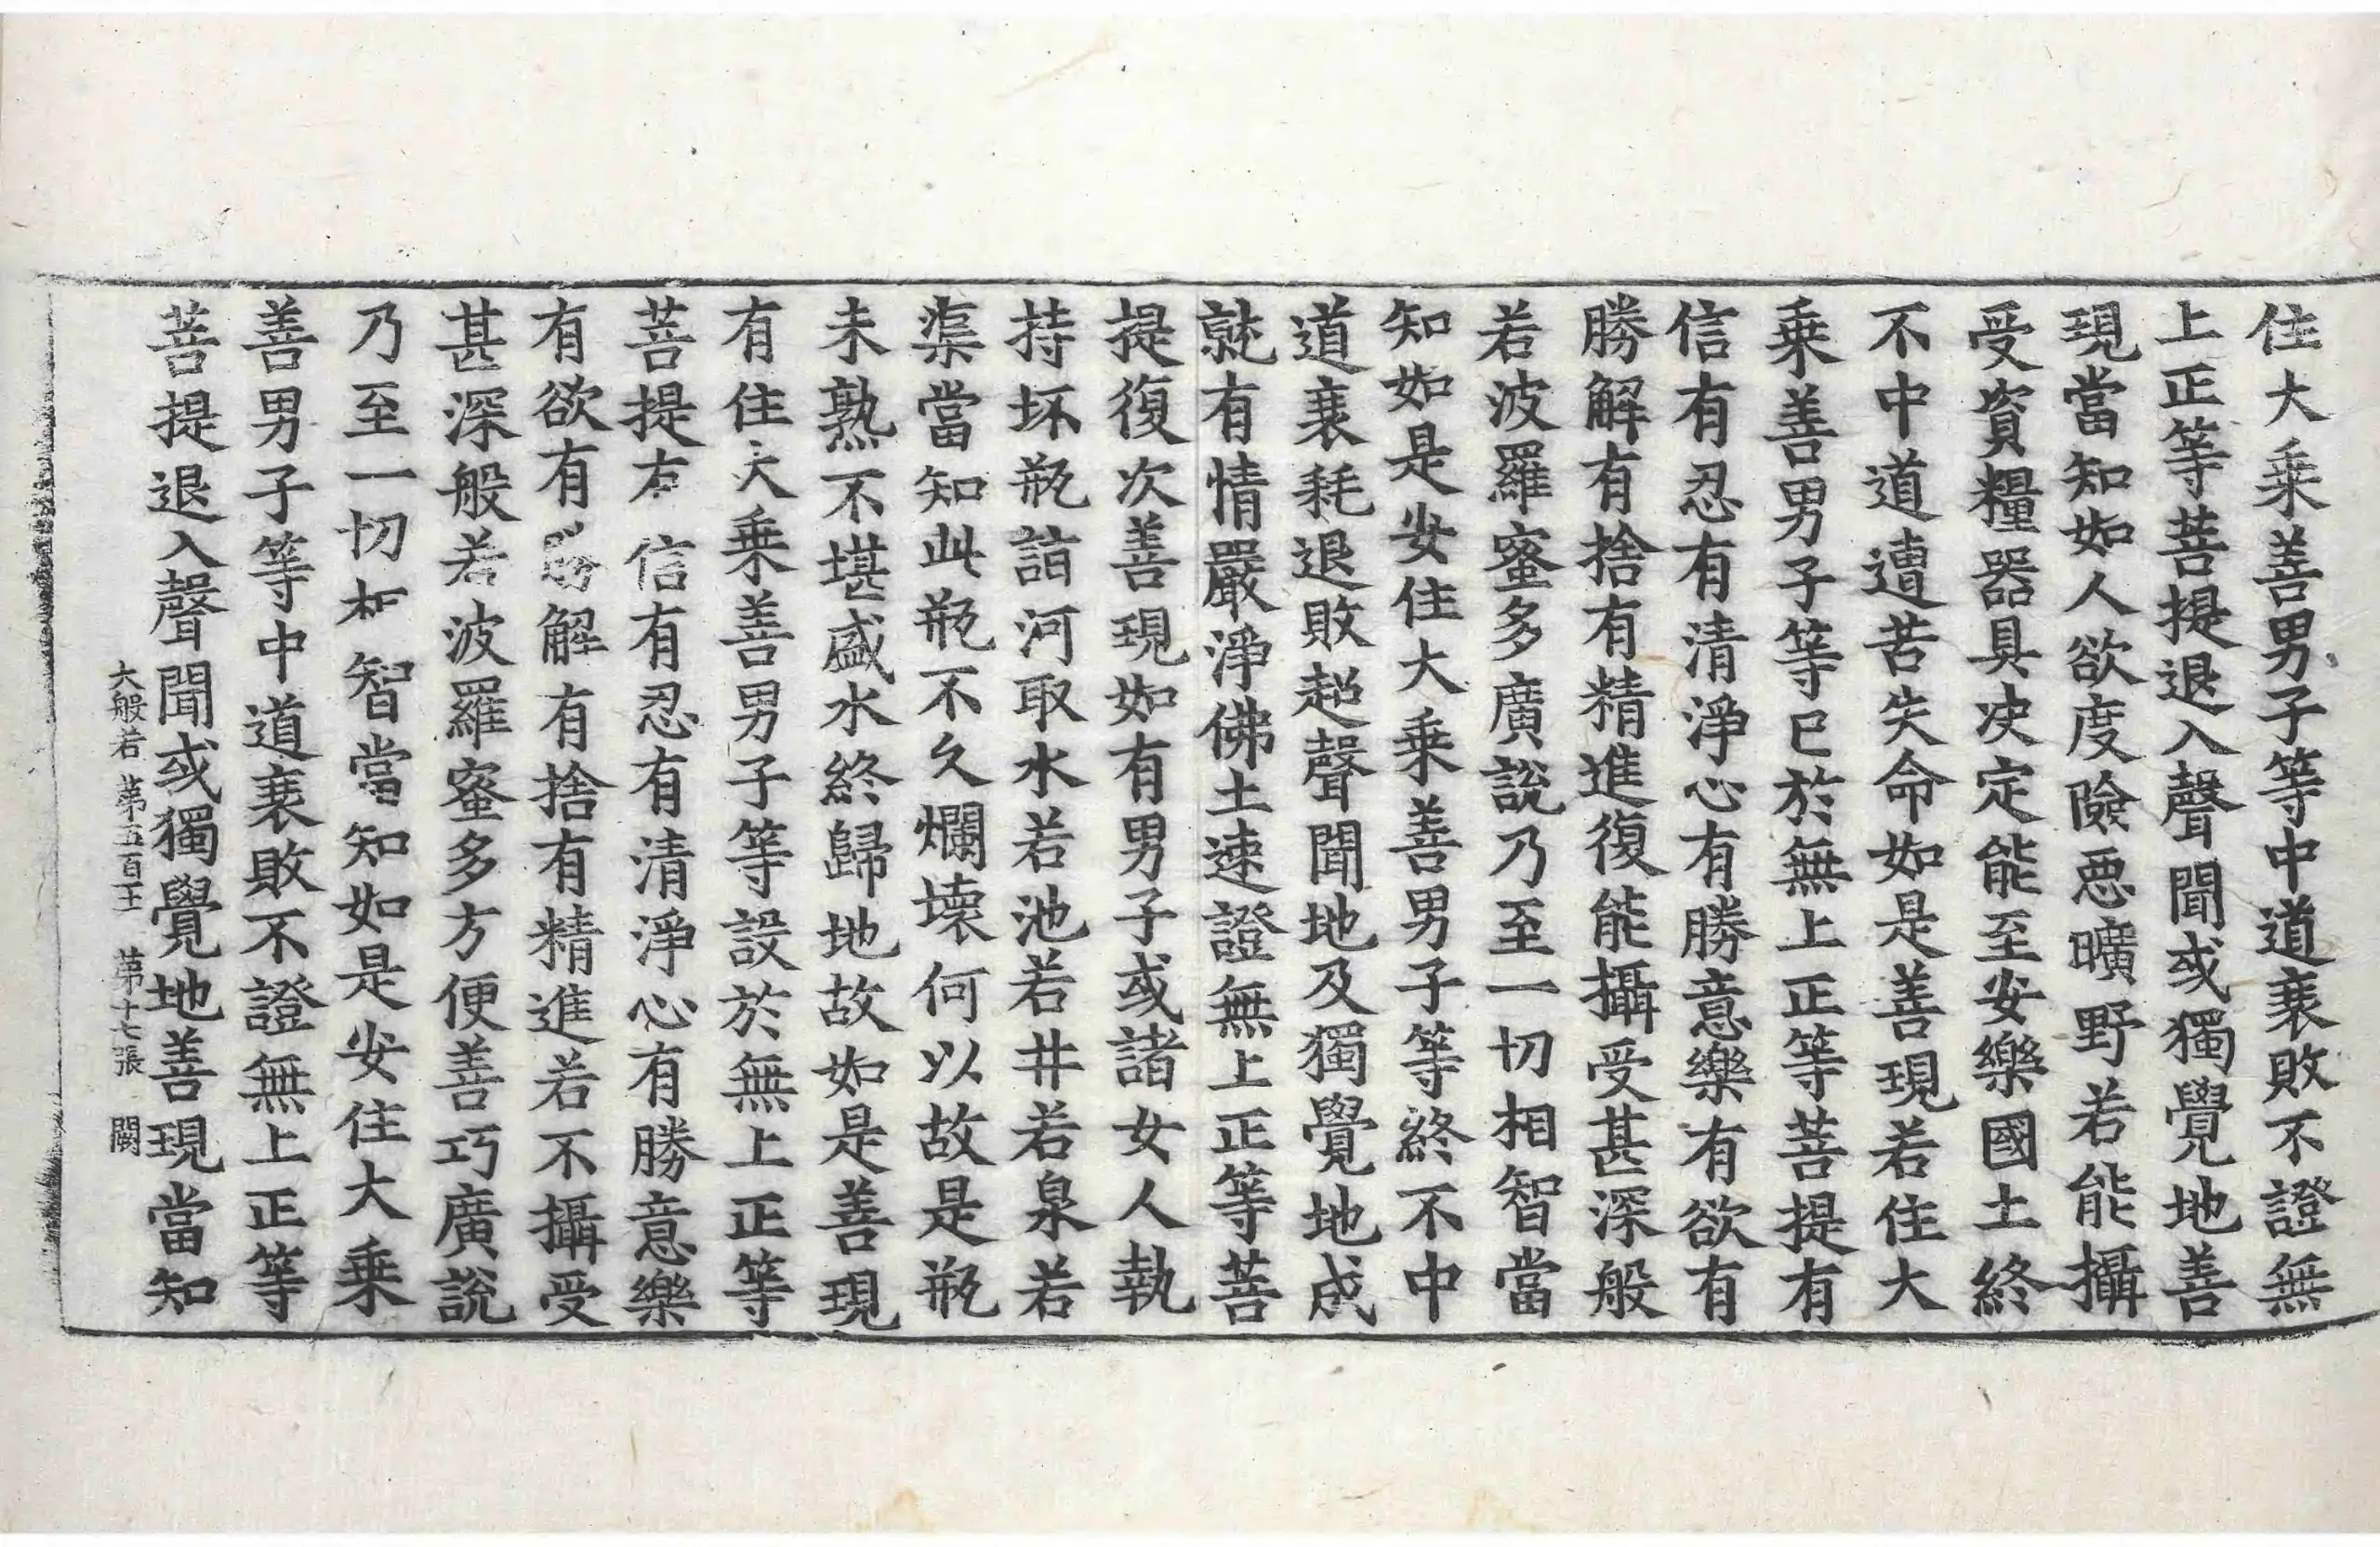 住大乗善男子等中道衰敗不證無
上正等菩提退入聲聞或獨覺地善
現當知如人欲度險惡曠野若能攝
受資糧器具決定能至安樂國土終
不中道遭苦失命如是善現若住大
乗善男子等已於無上正等菩提有
信有忍有清淨心有勝意樂有欲有
勝解有捨有精進復能攝受甚深般
若波羅蜜多廣說乃至一切相智當
知如是安住大乗善男子等終不中
道衰耗退敗超聲聞地及獨覺地成
就有情嚴淨佛土速證無上正等菩
提復次善現如有男子或諸女人執
持坏瓶詣河取水若池若井若泉若
渠當知此瓶不久爛壞何以故是瓶
未熟不堪盛水終歸地故如是善現
有住大乗善男子等設於無上正等
菩提有信有忍有清淨心有勝意樂
有欲有勝解有捨有精進若不攝受
甚深般若波羅蜜多方便善巧廣說
乃至一切相智當知如是安住大乗
善男子等中道衰敗不證無上正等
菩提退入聲聞或獨覺地善現當知
大般若 第五百王 第十七張 闕